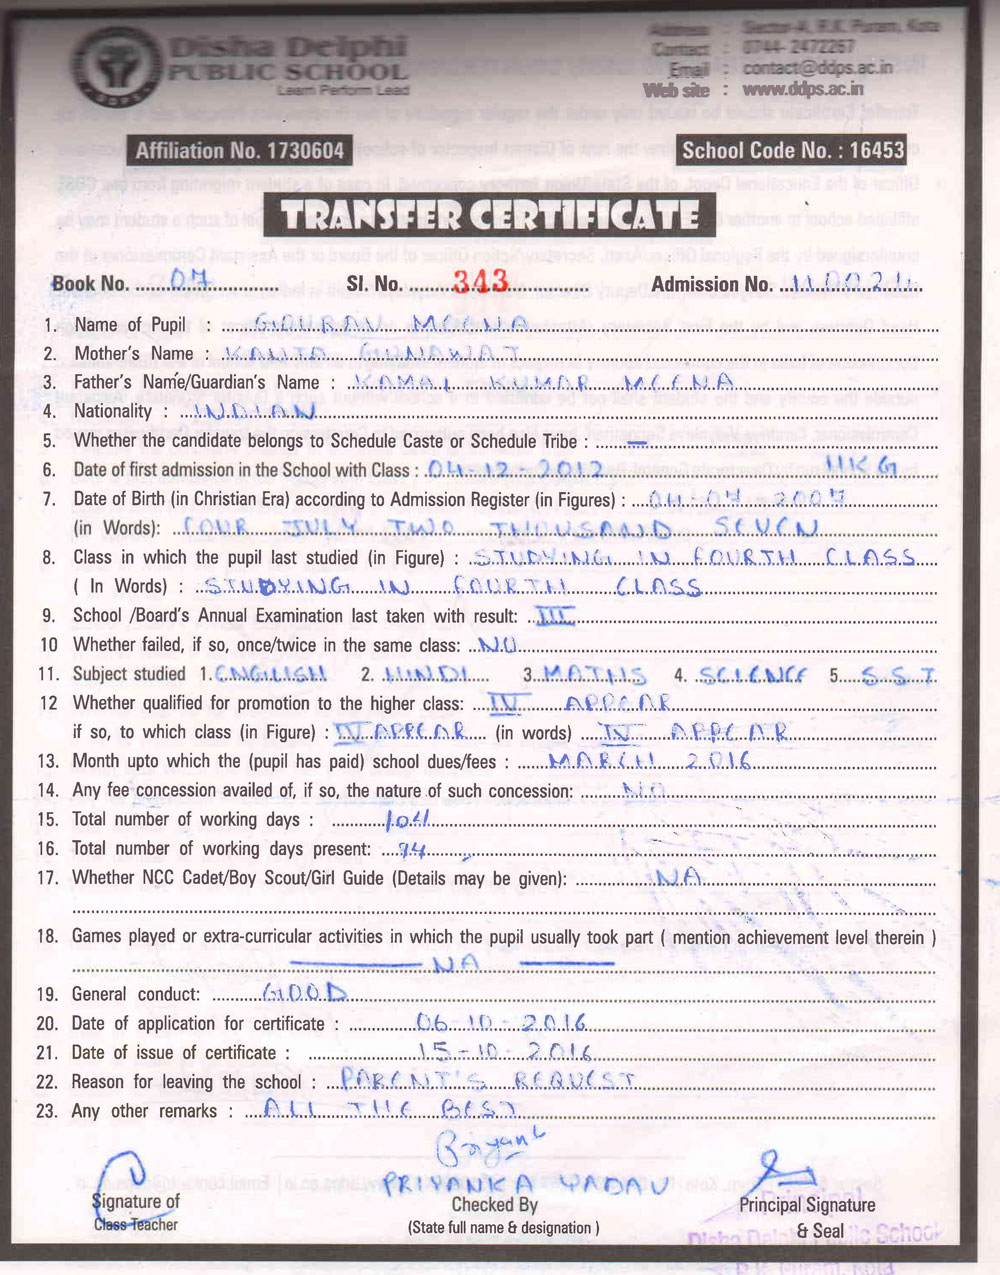 Disha Delphi
PUBLIC SCHOOL
Learn Perform Lead
DDPS
Address : Sector-A, R.K. Puram, Kota
Contact : 0744- 2472267
Email : contact@ddps.ac.in
Web site : www.ddps.ac.in
Affiliation No. 1730604
School Code No. : 16453
TRANSFER CERTIFICATE
Book No. : 07 Sl. No. 343 Admission No.
1. Name of Pupil : GOURAV MEENA
2. Mother's Name : KANTA GUNAWAT
3. Father's Name/Guardian's Name : KAMAL KUMAR MEENA
4. Nationality : INDIAN
5. Whether the candidate belongs to Schedule Caste or Schedule Tribe : —
6. Date of first admission in the School with Class : 04-12-2012 UKG
7. Date of Birth (in Christian Era) according to Admission Register (in Figures) : 04-07 2007
(in Words): FOUR JULY TWO THOUSAND SEVEN
8. Class in which the pupil last studied (in Figure) : STUDYING IN FOURTH CLASS
( In Words) : STUDYING IN FOURTH CLASS
9. School /Board's Annual Examination last taken with result: III
10 Whether failed, if so, once/twice in the same class: NO
11. Subject studied 1. ENGLISH 2. HINDI 3. MATHS 4. SCIENCE 5. S.S.T
12 Whether qualified for promotion to the higher class: IV APPEAR
if so, to which class (in Figure) : IV APPEAR (in words) IV APPEAR
13. Month upto which the (pupil has paid) school dues/fees : MARCH 2016
14. Any fee concession availed of, if so, the nature of such concession: NO
15. Total number of working days : 104
16. Total number of working days present: 94
17. Whether NCC Cadet/Boy Scout/Girl Guide (Details may be given): NA
18. Games played or extra-curricular activities in which the pupil usually took part ( mention achievement level therein )
— NA —
19. General conduct: GOOD
20. Date of application for certificate : 06-10-2016
21. Date of issue of certificate : 15-10-2016
22. Reason for leaving the school : PARENT'S REQUEST
23. Any other remarks : ALL THE BEST
PRIYANKA YADAV
Signature of
Class Teacher
Checked By
(State full name & designation )
Principal Signature
& Seal
Principal
Disha Delphi Public School
R.K. Puram, Kota